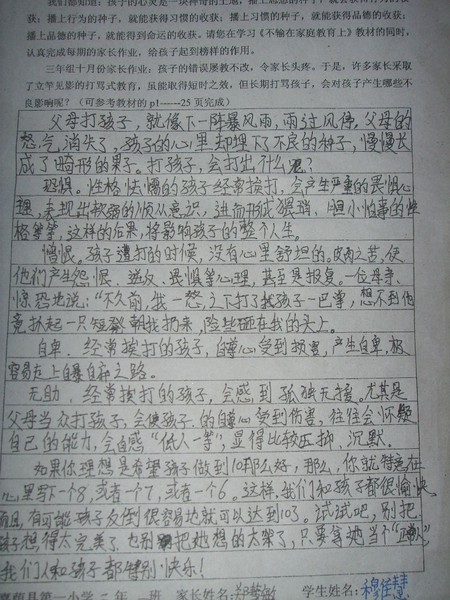 我们都知道：孩子的心灵是一块神奇的土地，播上思想的种子，就会获得行为的收
获；播上行为的种子，就能获得习惯的收获；播上习惯的种子，就能获得品德的收获；
播上品德的种子，就能得到命运的收获。请您在学习《不输在家庭教育上》教材的同时，
认真完成每期的家长作业，给孩子起到榜样的作用。
三年组十月份家长作业：孩子的错误屡教不改，令家长头疼。于是，许多家长采取
了立竿见影的打骂式教育，虽能取得短时之效，但长期打骂孩子，会对孩子产生哪些不
良影响呢？（可参考教材的 p1------25 页完成）
父母打孩子，就像下一阵暴风雨，雨过风停，父母的
怒气消失了，孩子的心里却埋下了不良的种子，慢慢长
成了畸形的果子。打孩子，会打出什么呢？
恐惧。性格怯懦的孩子经常挨打，会产生严重的畏惧心
理，表现出软弱的顺从意识，进而形成猥琐、胆小怕事的性
格等等，这样的后果，将影响孩子的整个人生。
憎恨。孩子遭打的时候，没有心里舒坦的。皮肉之苦，使
他们产生怨恨、逆反、畏惧等心理，甚至是报复。一位母亲
惊恐地说："不久前，我一怒之下打了我孩子一巴掌，想不到他
竟抓起一只短凳朝我扔来，险些砸在我的头上。
自卑、经常挨打的孩子，自尊心受到损害，产生自卑，极
容易走上自暴自弃之路。
无助、经常挨打的孩子，会感到孤独无援。尤其是
父母当众打孩子，会使孩子的自尊心受到伤害，往往会怀疑
自己的能力，会自感"低人一等"，显得比较压抑、沉默。
如果你理想是希望孩子做到10那么好，那么，你就特意在
心里写下一个8，或者一个7，或者一个6。这样，我们和孩子都很愉快，
而且，有可能孩子反倒很容易地就可以达到10了。试试吧，别把
孩子想得太完美了，也别把他想的太笨了，只要等她当个"正常人"
我们人和孩子都特别快乐！
县第一小学三年 班 家长姓名： 学生姓名：